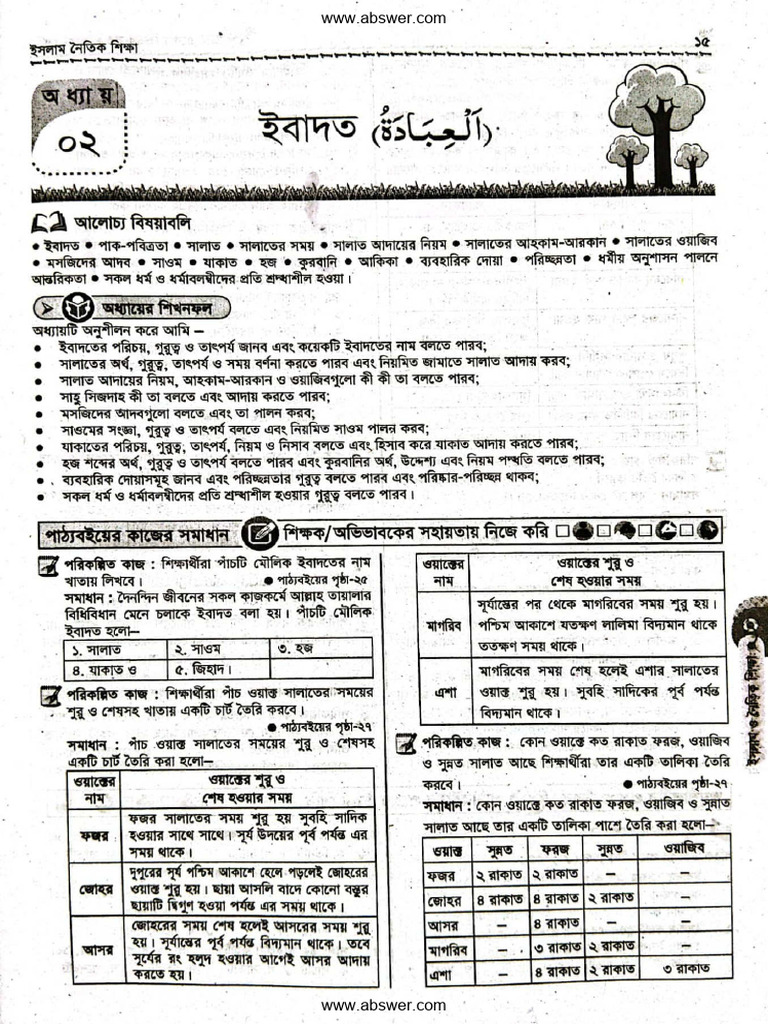 www.abswer.com
ইসলাম নৈতিক শিক্ষা
১৫
অধ্যায়
০২
ইবাদত (اَلْعِبَادَةُ)
আলোচ্য বিষয়াবলি
• ইবাদত • পাক-পবিত্রতা • সালাত • সালাতের সময় • সালাত আদায়ের নিয়ম • সালাতের আহকাম-আরকান • সালাতের ওয়াজিব
• মসজিদের আদব • সাওম • যাকাত • হজ • কুরবানি • আকিকা • ব্যবহারিক দোয়া • পরিচ্ছন্নতা • ধর্মীয় অনুশাসন পালনে
আন্তরিকতা • সকল ধর্ম ও ধর্মাবলম্বীদের প্রতি শ্রদ্ধাশীল হওয়া।
অধ্যায়ের শিখনফল
অধ্যায়টি অনুশীলন করে আমি –
• ইবাদতের পরিচয়, গুরুত্ব ও তাৎপর্য জানব এবং কয়েকটি ইবাদতের নাম বলতে পারব;
• সালাতের অর্থ, গুরুত্ব, তাৎপর্য ও সময় বর্ণনা করতে পারব এবং নিয়মিত জামাতে সালাত আদায় করব;
• সালাত আদায়ের নিয়ম, আহকাম-আরকান ও ওয়াজিবগুলো কী কী তা বলতে পারব;
• সাহু সিজদাহ কী তা বলতে এবং আদায় করতে পারব;
• মসজিদের আদবগুলো বলতে এবং তা পালন করব;
• সাওমের সংজ্ঞা, গুরুত্ব ও তাৎপর্য বলতে এবং নিয়মিত সাওম পালন করব;
• যাকাতের পরিচয়, গুরুত্ব, তাৎপর্য, নিয়ম ও নিসাব বলতে এবং হিসাব করে যাকাত আদায় করতে পারব;
• হজ শব্দের অর্থ, গুরুত্ব ও তাৎপর্য বলতে পারব এবং কুরবানির অর্থ, উদ্দেশ্য এবং নিয়ম পদ্ধতি বলতে পারব;
• ব্যবহারিক দোয়াসমূহ জানব এবং পরিচ্ছন্নতার গুরুত্ব বলতে পারব এবং পরিষ্কার-পরিচ্ছন্ন থাকব;
• সকল ধর্ম ও ধর্মাবলম্বীদের প্রতি শ্রদ্ধাশীল হওয়ার গুরুত্ব বলতে পারব।
পাঠ্যবইয়ের কাজের সমাধান শিক্ষক/অভিভাবকের সহায়তায় নিজে করি
পরিকল্পিত কাজ : শিক্ষার্থীরা পাঁচটি মৌলিক ইবাদতের নাম
খাতায় লিখবে। ● পাঠ্যবইয়ের পৃষ্ঠা-২৫
সমাধান : দৈনন্দিন জীবনের সকল কাজকর্মে আল্লাহ তায়ালার
বিধিবিধান মেনে চলাকে ইবাদত বলা হয়। পাঁচটি মৌলিক
ইবাদত হলো–
১. সালাত ২. সাওম ৩. হজ
৪. যাকাত ও ৫. জিহাদ।
পরিকল্পিত কাজ : শিক্ষার্থীরা পাঁচ ওয়াক্ত সালাতের সময়ের
শুরু ও শেষসহ খাতায় একটি চার্ট তৈরি করবে।
● পাঠ্যবইয়ের পৃষ্ঠা-২৭
সমাধান : পাঁচ ওয়াক্ত সালাতের সময়ের শুরু ও শেষসহ
একটি চার্ট তৈরি করা হলো–
ওয়াক্তের নাম ওয়াক্তের শুরু ও শেষ হওয়ার সময়
ফজর ফজর সালাতের সময় শুরু হয় সুবহি সাদিক
হওয়ার সাথে সাথে। সূর্য উদয়ের পূর্ব পর্যন্ত এর
সময় থাকে।
জোহর দুপুরের সূর্য পশ্চিম আকাশে হেলে পড়লেই জোহরের
ওয়াক্ত শুরু হয়। ছায়া আসলি বাদে কোনো বস্তুর
ছায়াটি দ্বিগুণ হওয়া পর্যন্ত এর সময় থাকে।
আসর জোহরের সময় শেষ হলেই আসরের সময় শুরু
হয়। সূর্যাস্তের পূর্ব পর্যন্ত বিদ্যমান থাকে। তবে
সূর্যের রং হলুদ হওয়ার আগেই আসর আদায়
করতে হয়।
ওয়াক্তের নাম ওয়াক্তের শুরু ও শেষ হওয়ার সময়
মাগরিব সূর্যাস্তের পর থেকে মাগরিবের সময় শুরু হয়।
পশ্চিম আকাশে যতক্ষণ লালিমা বিদ্যমান থাকে
ততক্ষণ সময় থাকে।
এশা মাগরিবের সময় শেষ হলেই এশার সালাতের
ওয়াক্ত শুরু হয়। সুবহি সাদিকের পূর্ব পর্যন্ত
বিদ্যমান থাকে।
পরিকল্পিত কাজ : কোন ওয়াক্তে কত রাকাত ফরজ, ওয়াজিব
ও সুন্নত সালাত আছে শিক্ষার্থীরা তার একটি তালিকা তৈরি
করবে। ● পাঠ্যবইয়ের পৃষ্ঠা-২৭
সমাধান : কোন ওয়াক্তে কত রাকাত ফরজ, ওয়াজিব ও সুন্নাত
সালাত আছে তার একটি তালিকা পাশে তৈরি করা হলো–
ওয়াক্ত সুন্নত ফরজ সুন্নত ওয়াজিব
ফজর ২ রাকাত ২ রাকাত – –
জোহর ৪ রাকাত ৪ রাকাত ২ রাকাত –
আসর – ৪ রাকাত – –
মাগরিব – ৩ রাকাত ২ রাকাত –
এশা – ৪ রাকাত ২ রাকাত ৩ রাকাত
ইসলাম ও নৈতিক শিক্ষা
www.abswer.com